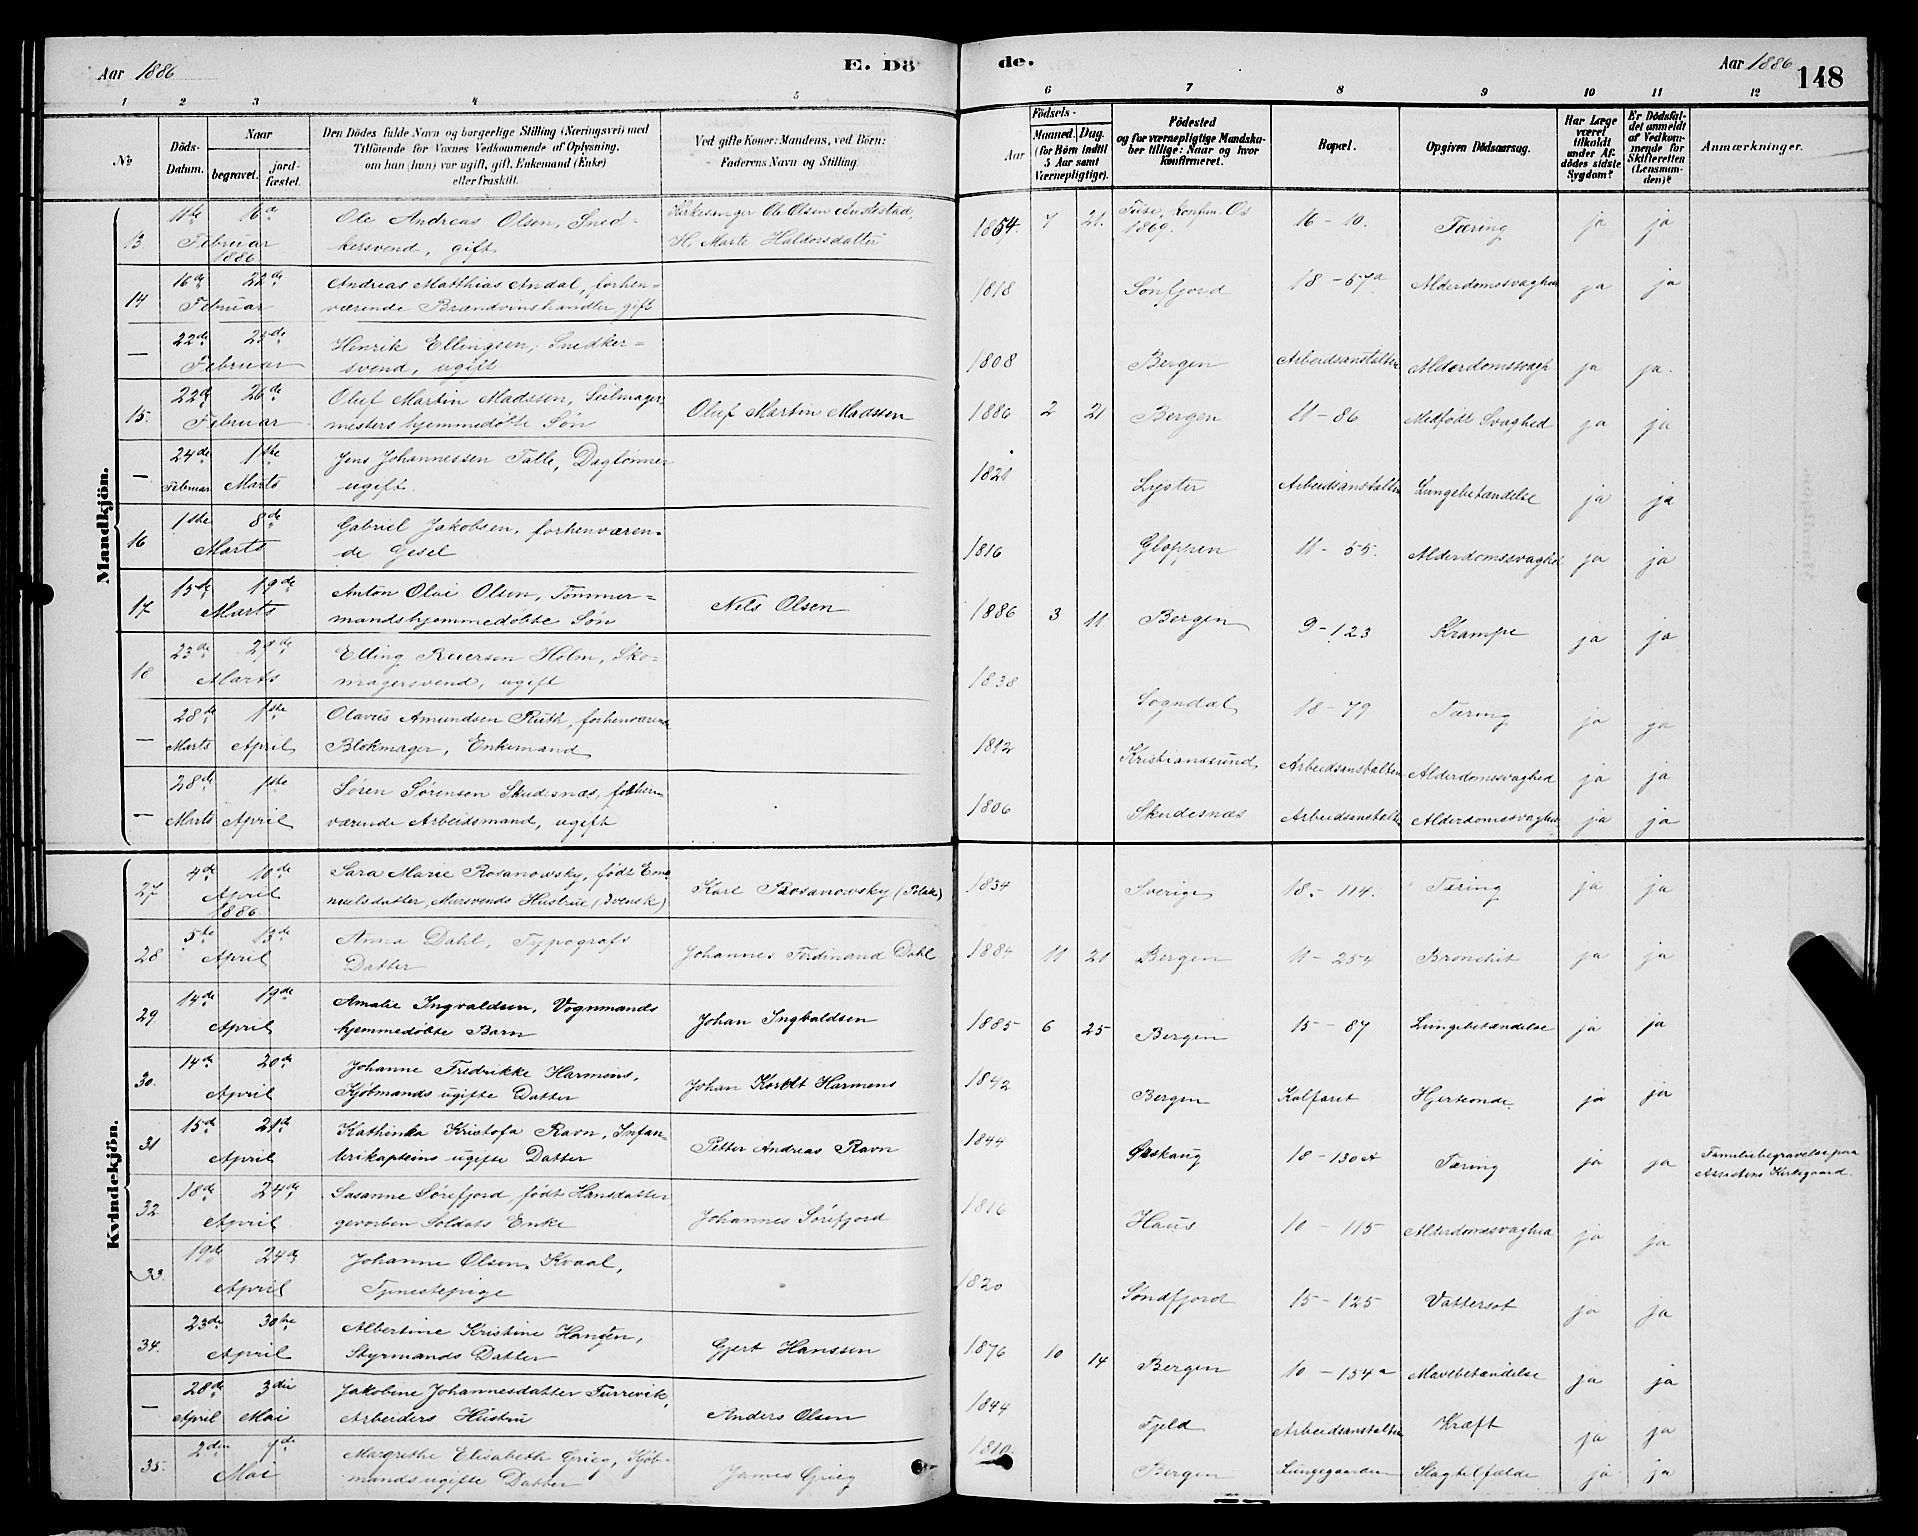 Aar 1886 E. Dö
de. Aar 1886 148
1 2 3 4 5 6 7 8 9 10 11 12
No
Döds-Datum.
Naar
begravet.
jord-fæstet.
Den Dödes fulde Navn og borgerlige Stilling (Næringsvei) med
Tilföiende for Voxnes Vedkommende af Oplysning,
om han (hun) var ugift, gift, Enkemand (Enke)
eller fraskilt.
Ved gifte Koner: Mandens, ved Börn:
Faderens Navn og Stilling.
Födsels-
Aar
Maaned. Dag.
(for Börn indtil
5 Aar samt
Værnepligtige).
Födested
og for værnepligtige Mandska-
ber tillige: Naar og hvor
konfirmeret.
Bopæl.
Opgiven Dödsaarsag.
Har Læge
været
tilkaldt
under Af-
dödes sidste
Sygdom?
Er Dödsfal-
det anmeldt
af Vedkom-
mende for
Skifteretten
(Lensman-
den)?
Anmærkninger.
Mandkjön.
13 11te 16de Ole Andreas Olsen, Sned- Kirkesanger Ole Olsen Austestad, 1854 7 21. Fuse, konfm. Os 16 - 10. Tæring ja ja
Februar 1886 kersvend, gift H. Marte Haldorsdatter 1869.
14 16de 22de Andreas Matthias Andal, forhen- 1818 Sönfjord 18 - 57a Alderdomssvaghed ja ja
Februar værende Brændvinshandler, gift
— 22de 25de Henrik Ellingsen, Snedker- 1808 Bergen Arbeidsanstalten Alderdomssvagh. ja ja.
Februar svend, ugift
15. 22de 26de Oluf Martin Madssen, Seilmager- Oluf Martin Madssen 1886 2 21 Bergen 11 - 86 Medfödt Svaghed ja ja
Februar mesters hjemmedöbte Sön
— 24de 1ste Jens Johannessen Talle, Daglönner 1821 Lyster Arbeidsanstalten Lungebetændelse ja ja
Februar Marts ugift.
16 1ste 8de Gabriel Jakobsen, forhenværen- 1816 Gloppen 11 - 55. Alderdomssvaghed ja ja
Marts de Gesel
17 15de 19de Anton Olai Olsen, Tömmer- Nels Olsen 1886 3 11 Bergen 9 - 123 Krampe ja ja
Marts mands hjemmedöbte Sön
18 23de 27de Elling Reersen Holm, Sko- 1838 Sogndal 18 - 79 Tæring ja ja
Marts magersvend, ugift
— 28de 1ste Olavus Amundsen Ruth, forhenværende 1812 Kristianssund Arbeidsanstalten Alderdomssvaghed ja ja
Marts April Blokmager, Enkemand
— 28de 1ste Sören Sörensen Skudesnæs, forhen- 1806 Skudesnæs Arbeidsanstalten Alderdomssvaghed ja ja
Marts April værende Arbeidsmand, ugift
Kvindekjön.
27 4de 10de Sara Marie Rosanowsky, födt Ema- Karl Rosanowsky (Polak) 1834 Sverige 18 - 114. Tæring ja ja
April 1886 nuelsdatter, Mursvends Hustrue (Svensk)
28 5te 13de Anna Dahl, Typografs Johannes Ferdinand Dahl 1884 11 21 Bergen 11 - 254 Bronchit ja ja
April Datter
29 14de 19de Amalie Ingvaldsen, Vognmands Johan Ingvaldsen 1885 6 25 Bergen 15 - 87 Lungebetændelse ja ja
April hjemmedöbte Barn
30. 14de 20de Johanne Fredrikke Harmens, Johan Kordt Harmens 1842 Bergen Kalfaret Hjerteonde. ja ja
April Kjöbmands ugifte Datter
31 15de 21de Kathinka Kristofa Ravn, Infan- Petter Andreas Ravn 1844 Örskaug 18 - 130A Tæring ja ja Familiebegravelse paa
April terikapteins ugifte Datter Assistens Kirkegaard.
32 18de 24de Susanne Sörefjord, födt Hansdatter, Johannes Sörefjord 1816 Haus 10 - 115 Alderdomssvaghed ja ja
April gevorben Soldats Enke
33. 19de 24de Johanne Olsen Kvaal, 1820 Söndfjord 15 - 125 Vattersot ja ja
April Tjenestepige
34. 23de 30te Albertine Kristine Hansen, Gjert Hanssen 1876 10 14 Bergen 10 - 154a Mavebetændelse ja ja
April Styrmands Datter
— 28de 3die Jakobine Johannesdatter Turrevik, Anders Olsen 1844 Fjeld Arbeidsanstalten Kræft ja ja
April Mai Arbeiders Hustru
35. 2den 7de Margrethe Elisabeth Grieg, Kjöb- James Grieg 1810. Bergen Lungegaarden Slagtilfælde ja ja
Mai mands ugifte Datter